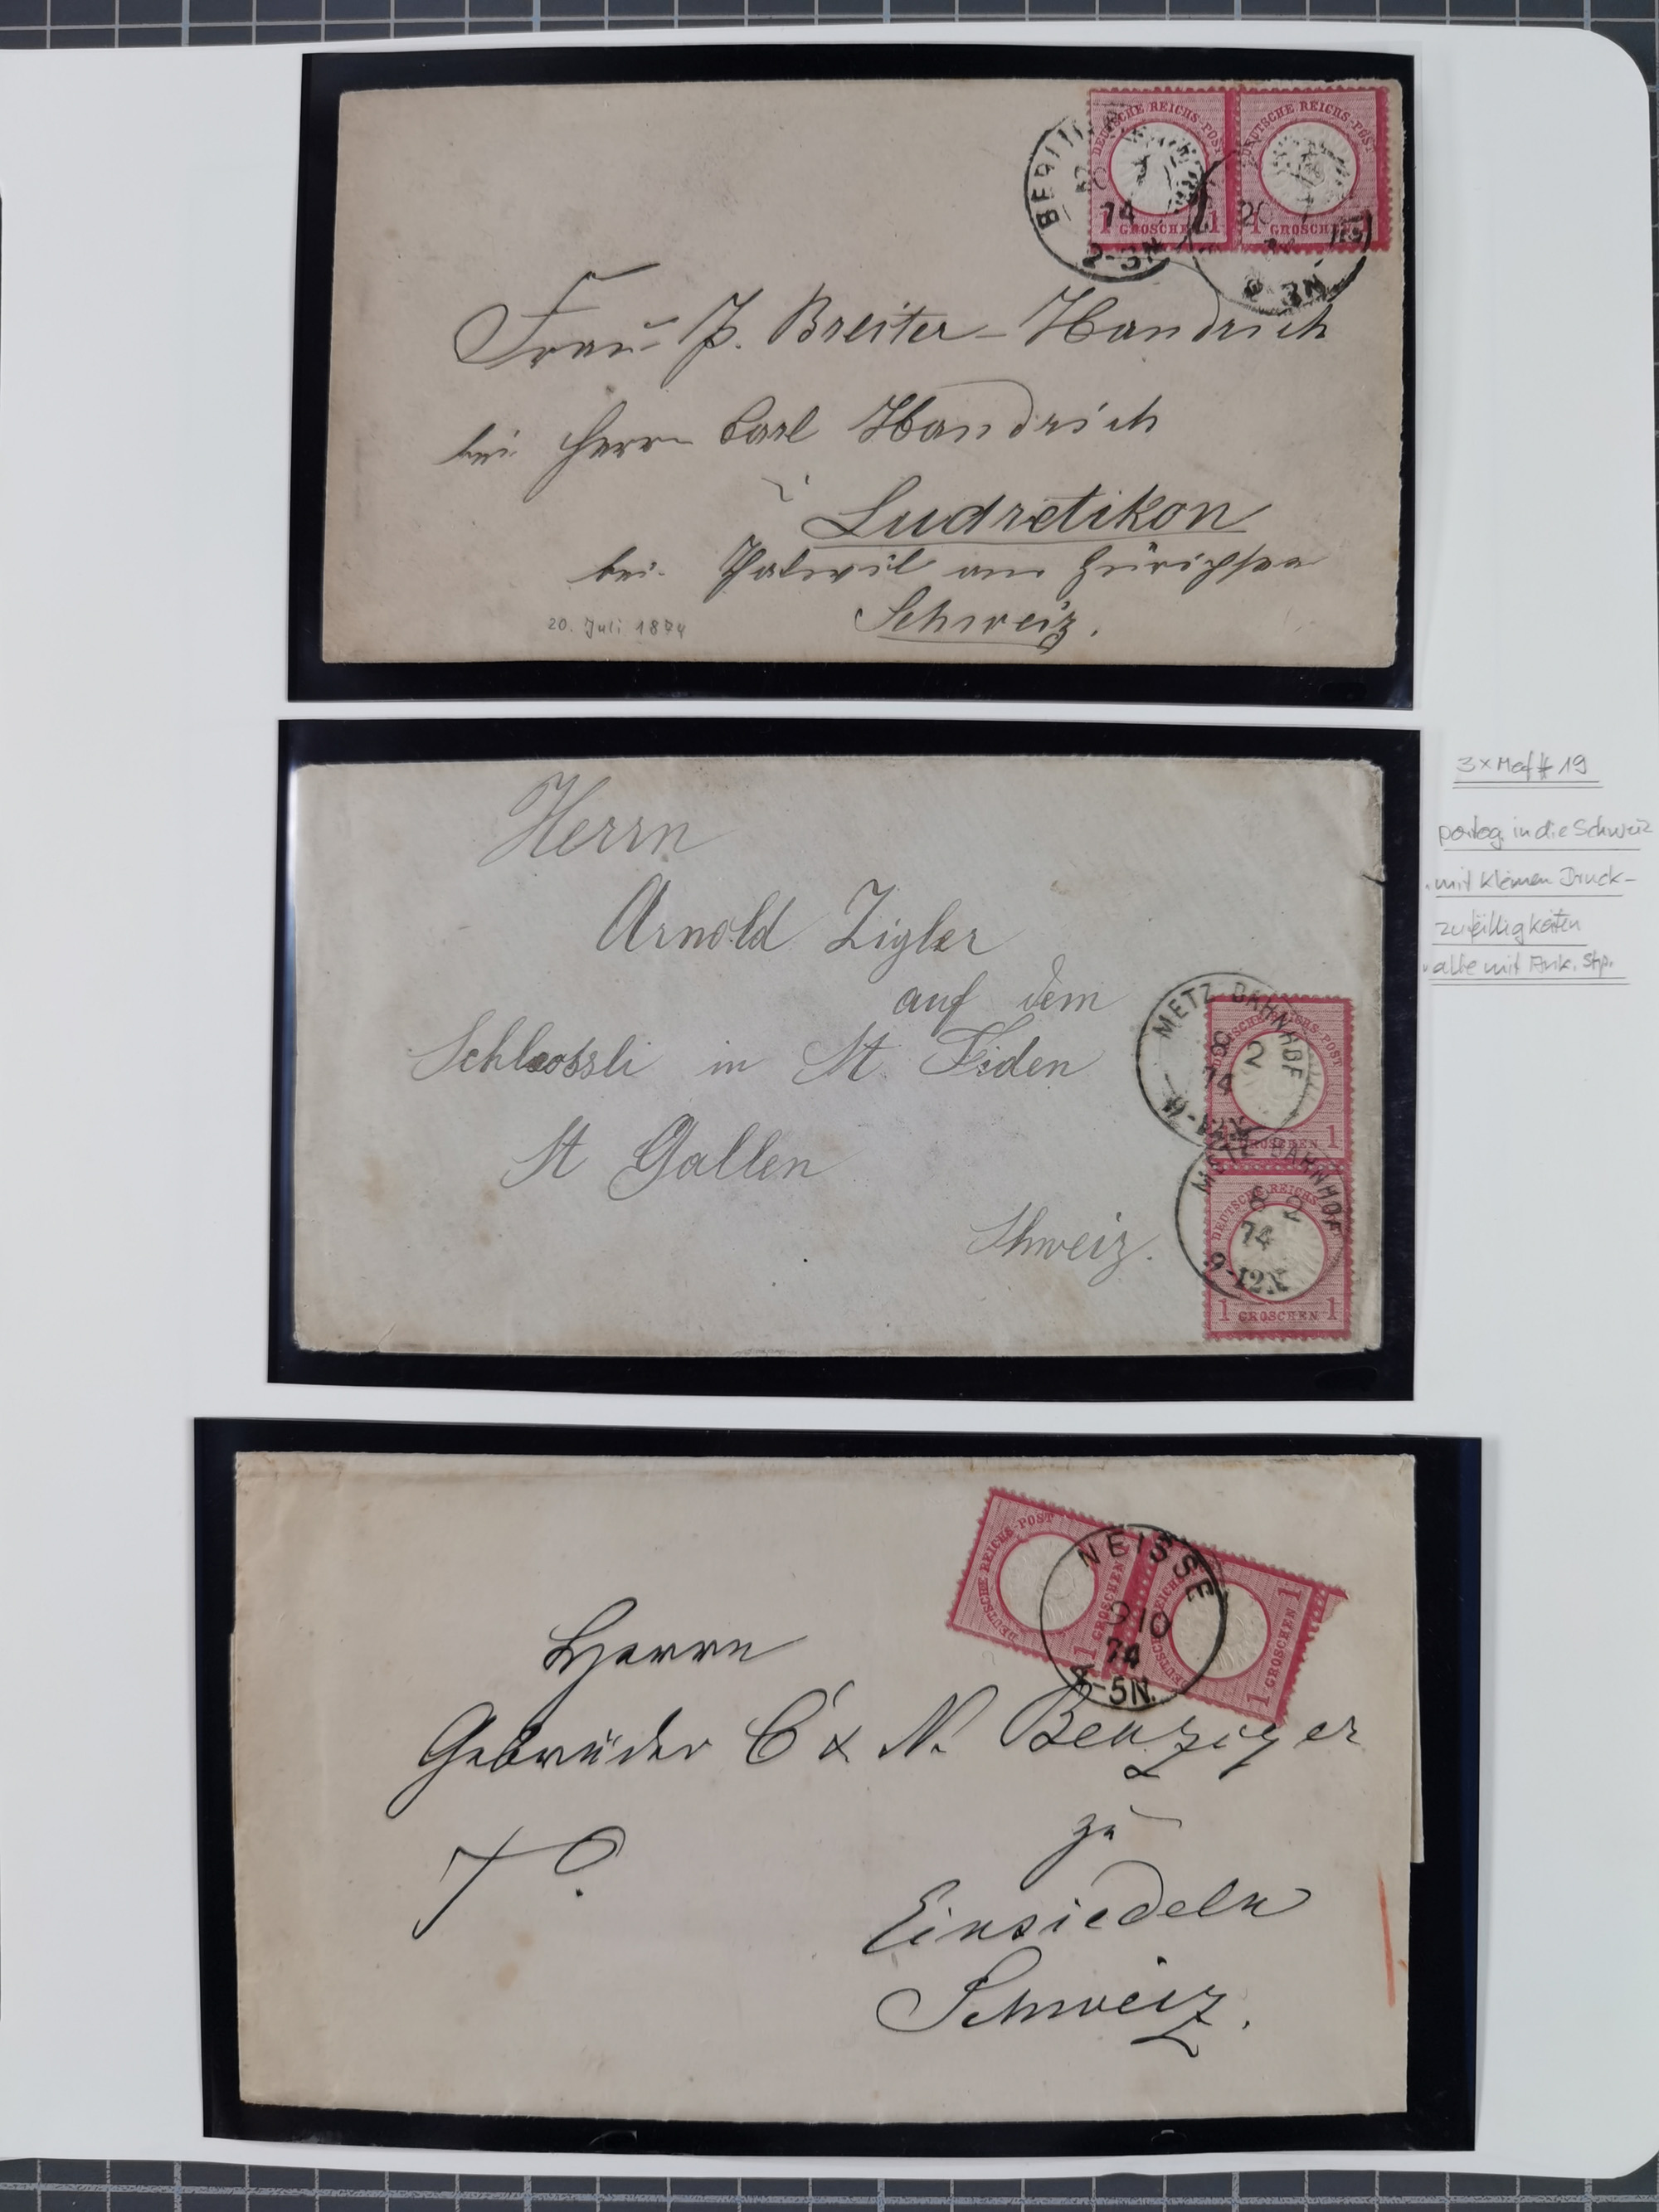 DEUTSCHE REICHS-POST
DEUTSCHE REICHS-POST
BERLIN
74
2-3N
1 GROSCHEN 1
1 GROSCHEN
20
Frau P. Breiter-Handrich
bei Herrn Carl Handrich
Ludretikon
bei Thalwil am Zürichsee
Schweiz.
20. Juli 1874
Herrn
Arnold Zigler
auf dem
Schloossli in St Fiden
St Gallen
Schweiz.
METZ BAHNHOF
8 2
74
DEUTSCHE REICHS-POST
GROSCHEN 1
METZ BAHNHOF
DEUTSCHE REICHS
8 2
74
9-12N
1 GROSCHEN 1
3 x Mef # 19
portog. in die Schweiz
mit kleinen Druck-
zufälligkeiten
alle mit Ank. Stp.
DEUTSCHE REICHS-POST
1 GROSCHEN
NEISSE
9 10
74
4-5N.
DEUTSCHE REICHS
1 GROSCHEN 1
Herrn
Gebrüder C & N. Benziger
zu
Einsiedeln
Schweiz.